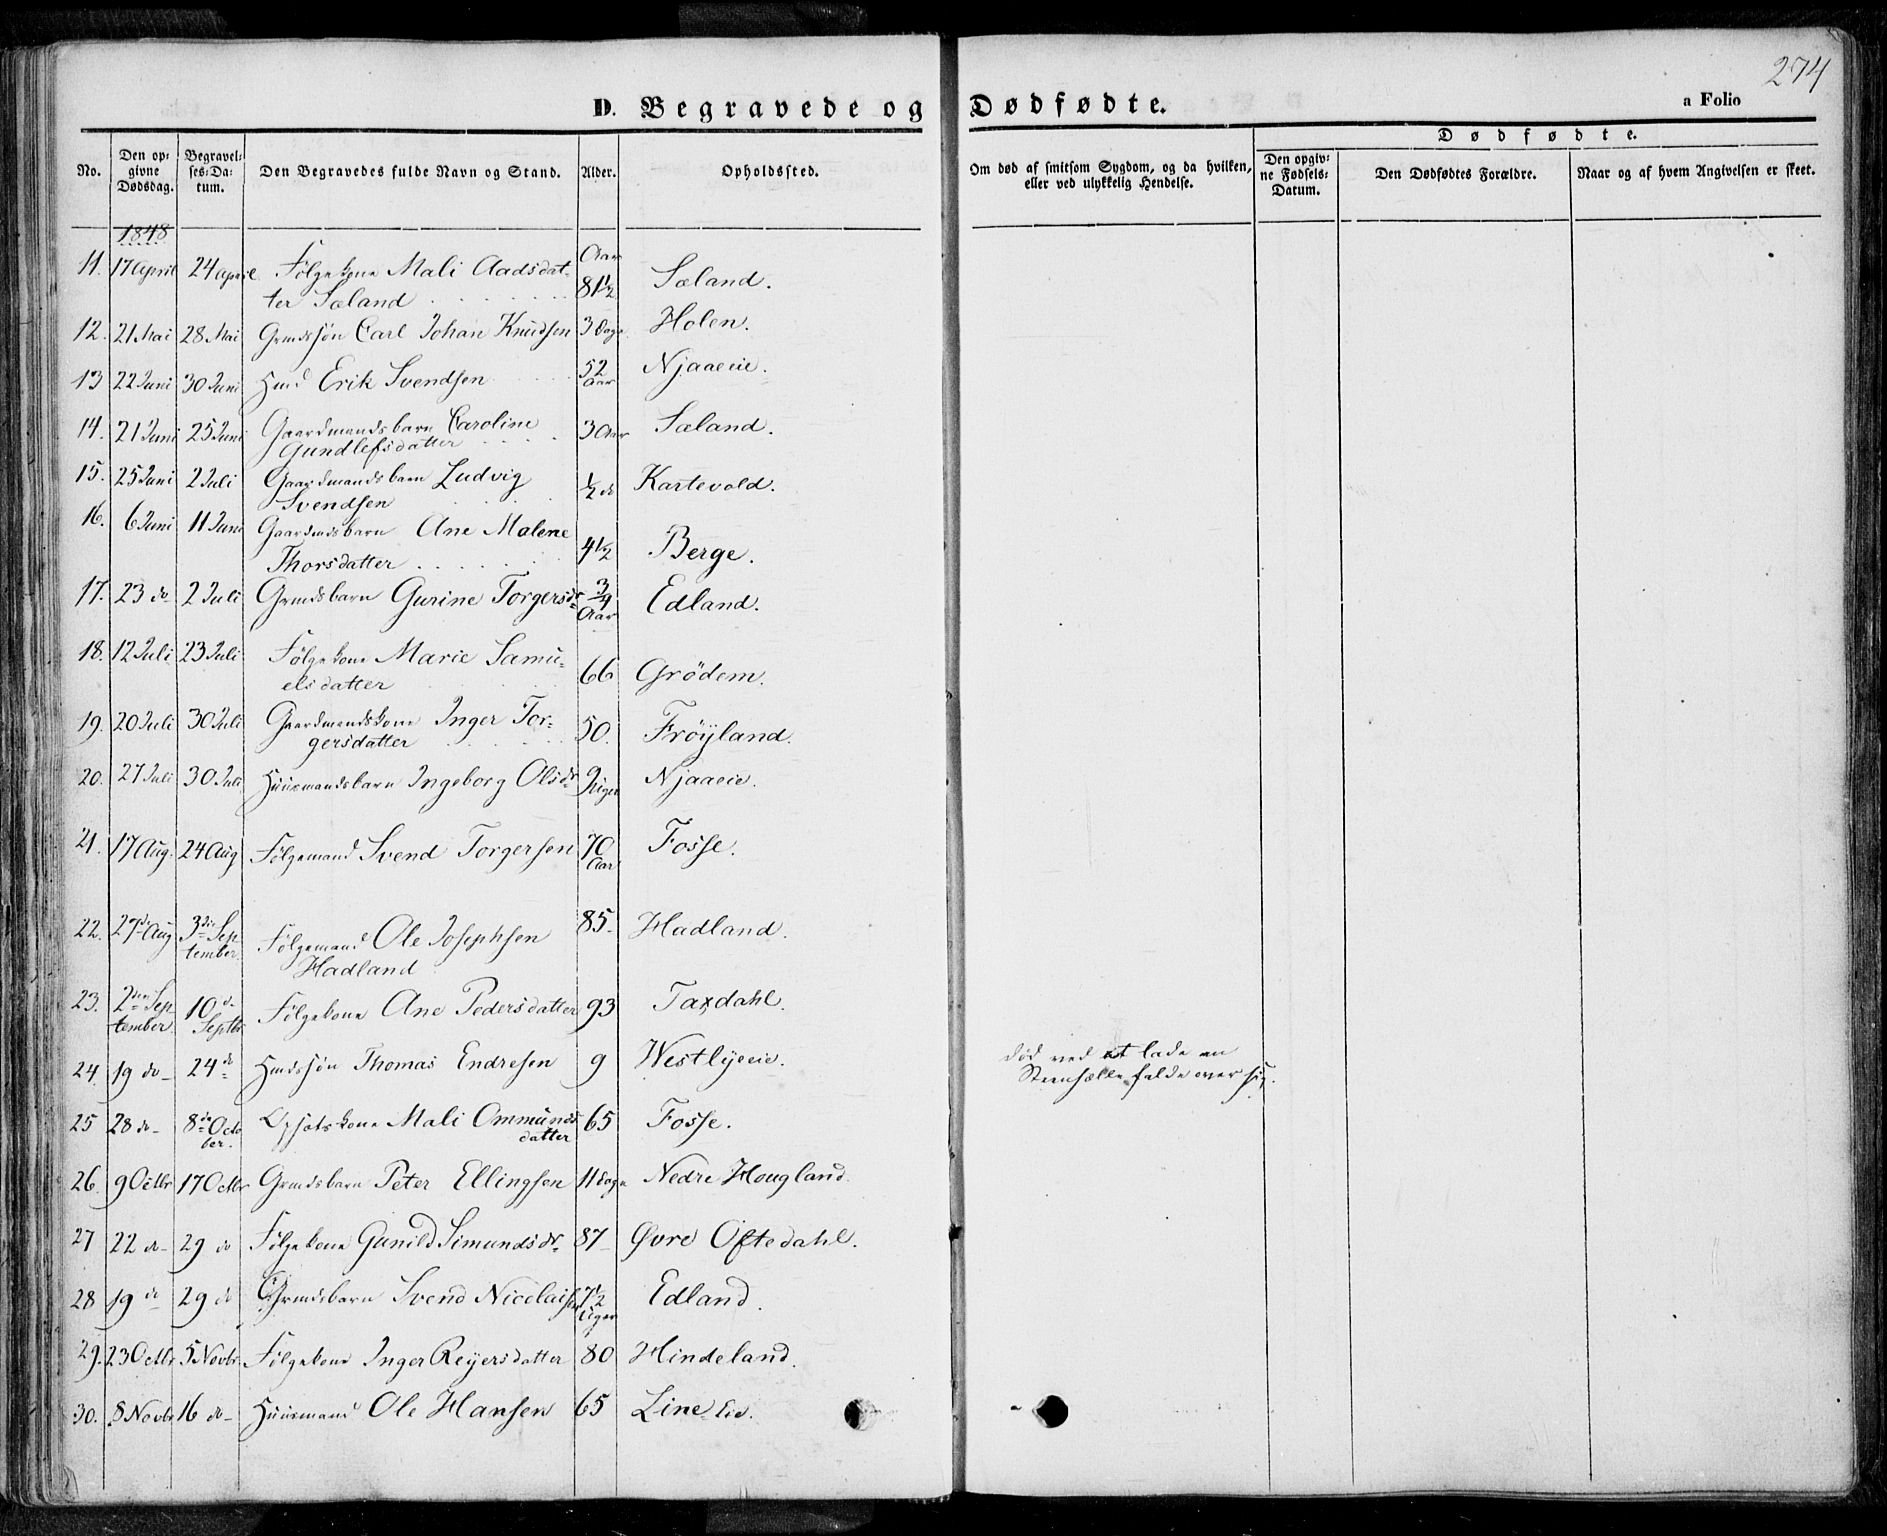 274
D. Begravede og Dødfødte.
a Folio
No.
Den op-
givne
Dødsdag.
Begravel-
ses-Da-
tum.
Den Begravedes fulde Navn og Stand.
Alder.
Opholdssted.
Om død af smitsom Sygdom, og da hvilken,
eller ved ulykkelig Hendelse.
Dødfødte.
Den opgiv-
ne Fødsels-
Datum.
Den Dødfødtes Forældre.
Naar og af hvem Angivelsen er skeet.
1848
11. 17 April 24 April Følgekone Mali Aadsdat- Aar
ter Sæland 81½ Sæland.
12. 21 Mai 28 Mai Grmdssøn Carl Johan Knudsen 3 Dage Holen.
13 22 Juni 30 Juni Hmd Erik Svendsen 52 Aar Njaaeie.
14. 21 Juni 25 Juni Gaardmandsbarn Caroline
Gundlefsdatter 3 Aar Sæland.
15. 25 Juni 2 Juli Gaardmandsbarn Ludvig
Svendsen ½ do Kartevold.
16. 6 Juni 11 Juni Gaardmdsbarn Ane Malene
Thorsdatter 4½ Berge.
17. 23 do 2 Juli Grmdsbarn Gurine Torgersdr ¾ Aar Edland.
18. 12 Juli 23 Juli Følgekone Marie Samu-
elsdatter 66 Grödem.
19. 20 Juli 30 Juli Gaardmandskone Inger Tor-
gersdatter 50. Fröyland.
20. 27 Juli 30 Juli Huusmandsbarn Ingeborg Olsdr 2 Uger Njaaeie.
21. 17 Aug. 24 Aug Følgemand Svend Torgersen 70 Aar Fosse.
22. 27de Aug 3die Sep
tember Følgemand Ole Josephsen
Hadland 85 Hadland.
23. 2den Sep
tember 10de
Septbr Følgekone Ane Pedersdatter 93 Taxdahl.
24 19 do 24 do Hmdssøn Thomas Endresen 9 Westlyeeie. død ved at lade en
Steenhælle falde over sig.
25 28 do 8de Octo
ber. Opsatskone Mali Ommunds
datter 65 Fosse.
26. 9 Octbr 17 Octbr Grmdsbarn Peter Ellingsen 11 Dage Nedre Hougland.
27 22 do 29 do Følgekone Gunild Simundsdr 87 Øvre Oftedahl.
28 19 do 29 do Grmdsbarn Svend Nicolaisen 7½ Uger Edland.
29. 23 Octbr 5 Novbr. Følgekone Inger Reyersdatter 80 Hindeland.
30. 8 Novbr 16 do Huusmand Ole Hansen 65 Line Eie.